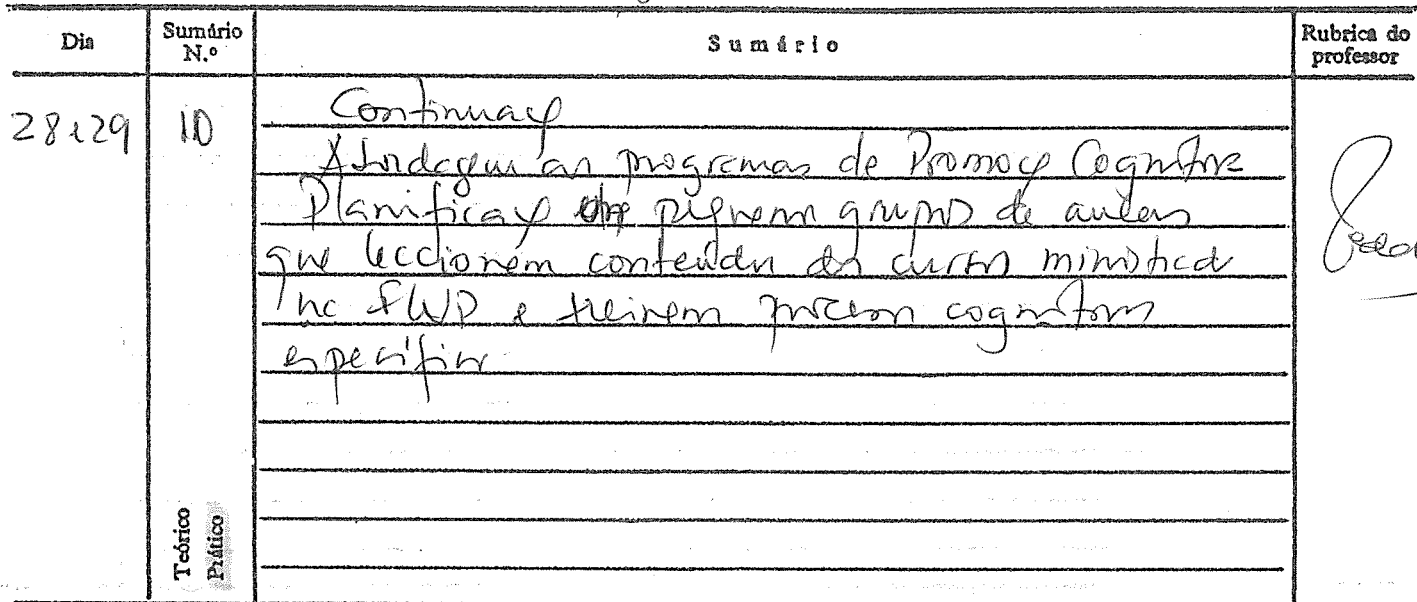 Dia Sumário N.º Sumário Rubrica do professor
28 e 29 10 Continuaç
Abordagem aos programas de Promoç Cognitiva
Planificaç pequeno grupo de aulas
que leccionem conteúdos do curso ministrad
e treinem processos cognitivos
específicos
Teórico
Prático